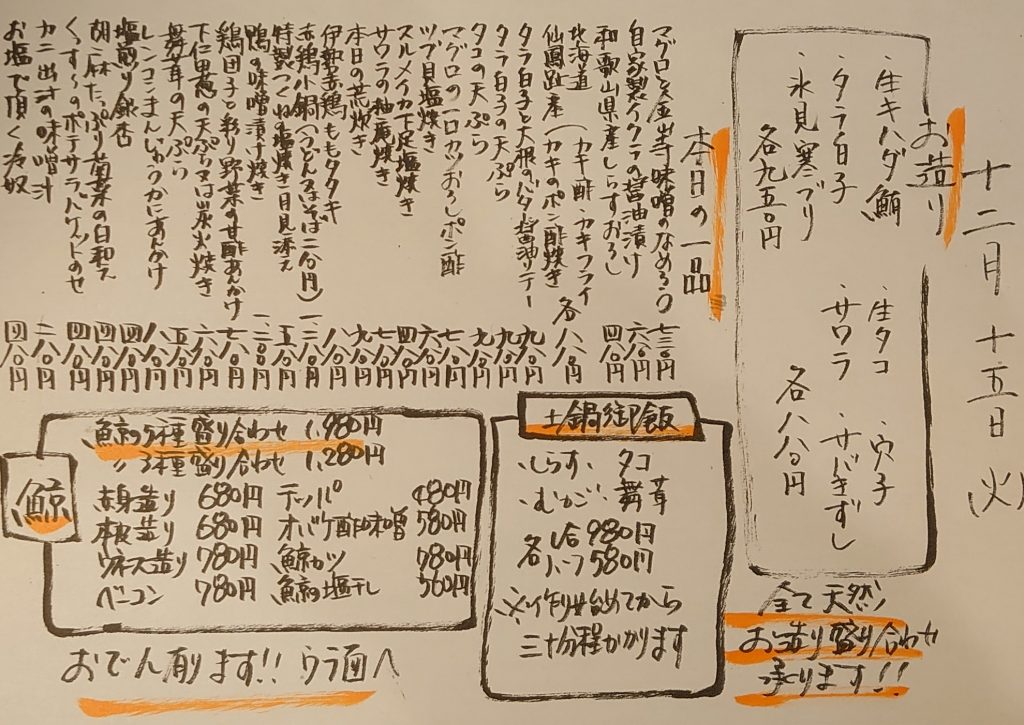 十二月十五日(火)
お造り
・生キハダ鮪
・タラ白子
・氷見寒ブリ
各九五〇円
・生タコ ・穴子
・サワラ ・サバきずし
各八八〇円
全て天然
お造り盛り合わせ
承ります!!
本日の一品
マグロと金山寺味噌のなめろう 七三〇円
自家製イクラの醤油漬け 六八〇円
和歌山県産しらすおろし 四八〇円
北海道 (カキ酢・カキフライ
仙鳳趾産 (カキのポン酢焼き 各八八〇円
タラ白子と大根のバター醤油ソテー 九八〇円
タラ白子の天ぷら 九八〇円
タコの天ぷら 九八〇円
マグロの一口カツおろしポン酢 七八〇円
ツブ貝塩焼き 六八〇円
スルメイカ下足塩焼き 四八〇円
サワラの柚庵焼き 七八〇円
本日の荒炊き 九八〇円
伊勢赤鶏ももタタキ 八八〇円
赤鶏小鍋(うどん又はそば二分円)
特製つくねの塩焼き 月見添え 五八〇円
鴨の味噌漬け焼き
鶏団子と彩り野菜の甘酢あんかけ 七八〇円
下仁田葱の天ぷら又は炭火焼き 六八〇円
舞茸の天ぷら 五八〇円
レンコンまんじゅうかにあんかけ 八八〇円
塩煎り銀杏 四八〇円
胡麻たっぷり菊菜の白和え 四八〇円
くずし〜のポテサラバゲットのせ 四八〇円
カニ出汁の味噌汁 二八〇円
お塩で頂く冷奴 四八〇円
土鍋御飯
・しらす・タコ
・むかご・舞茸
各 1合 980円
ハーフ 580円
※作り始めてから
三十分程かかります
鯨
鯨の5種盛り合わせ 1,980円
〃 3種盛り合わせ 1,280円
赤身造り 680円 テッパ 480円
本皮造り 680円 オバケ酢味噌 580円
ウネス造り 780円 鯨カツ 780円
ベーコン 780円 鯨の塩干し 560円
おでん有ります!! ウラ面へ